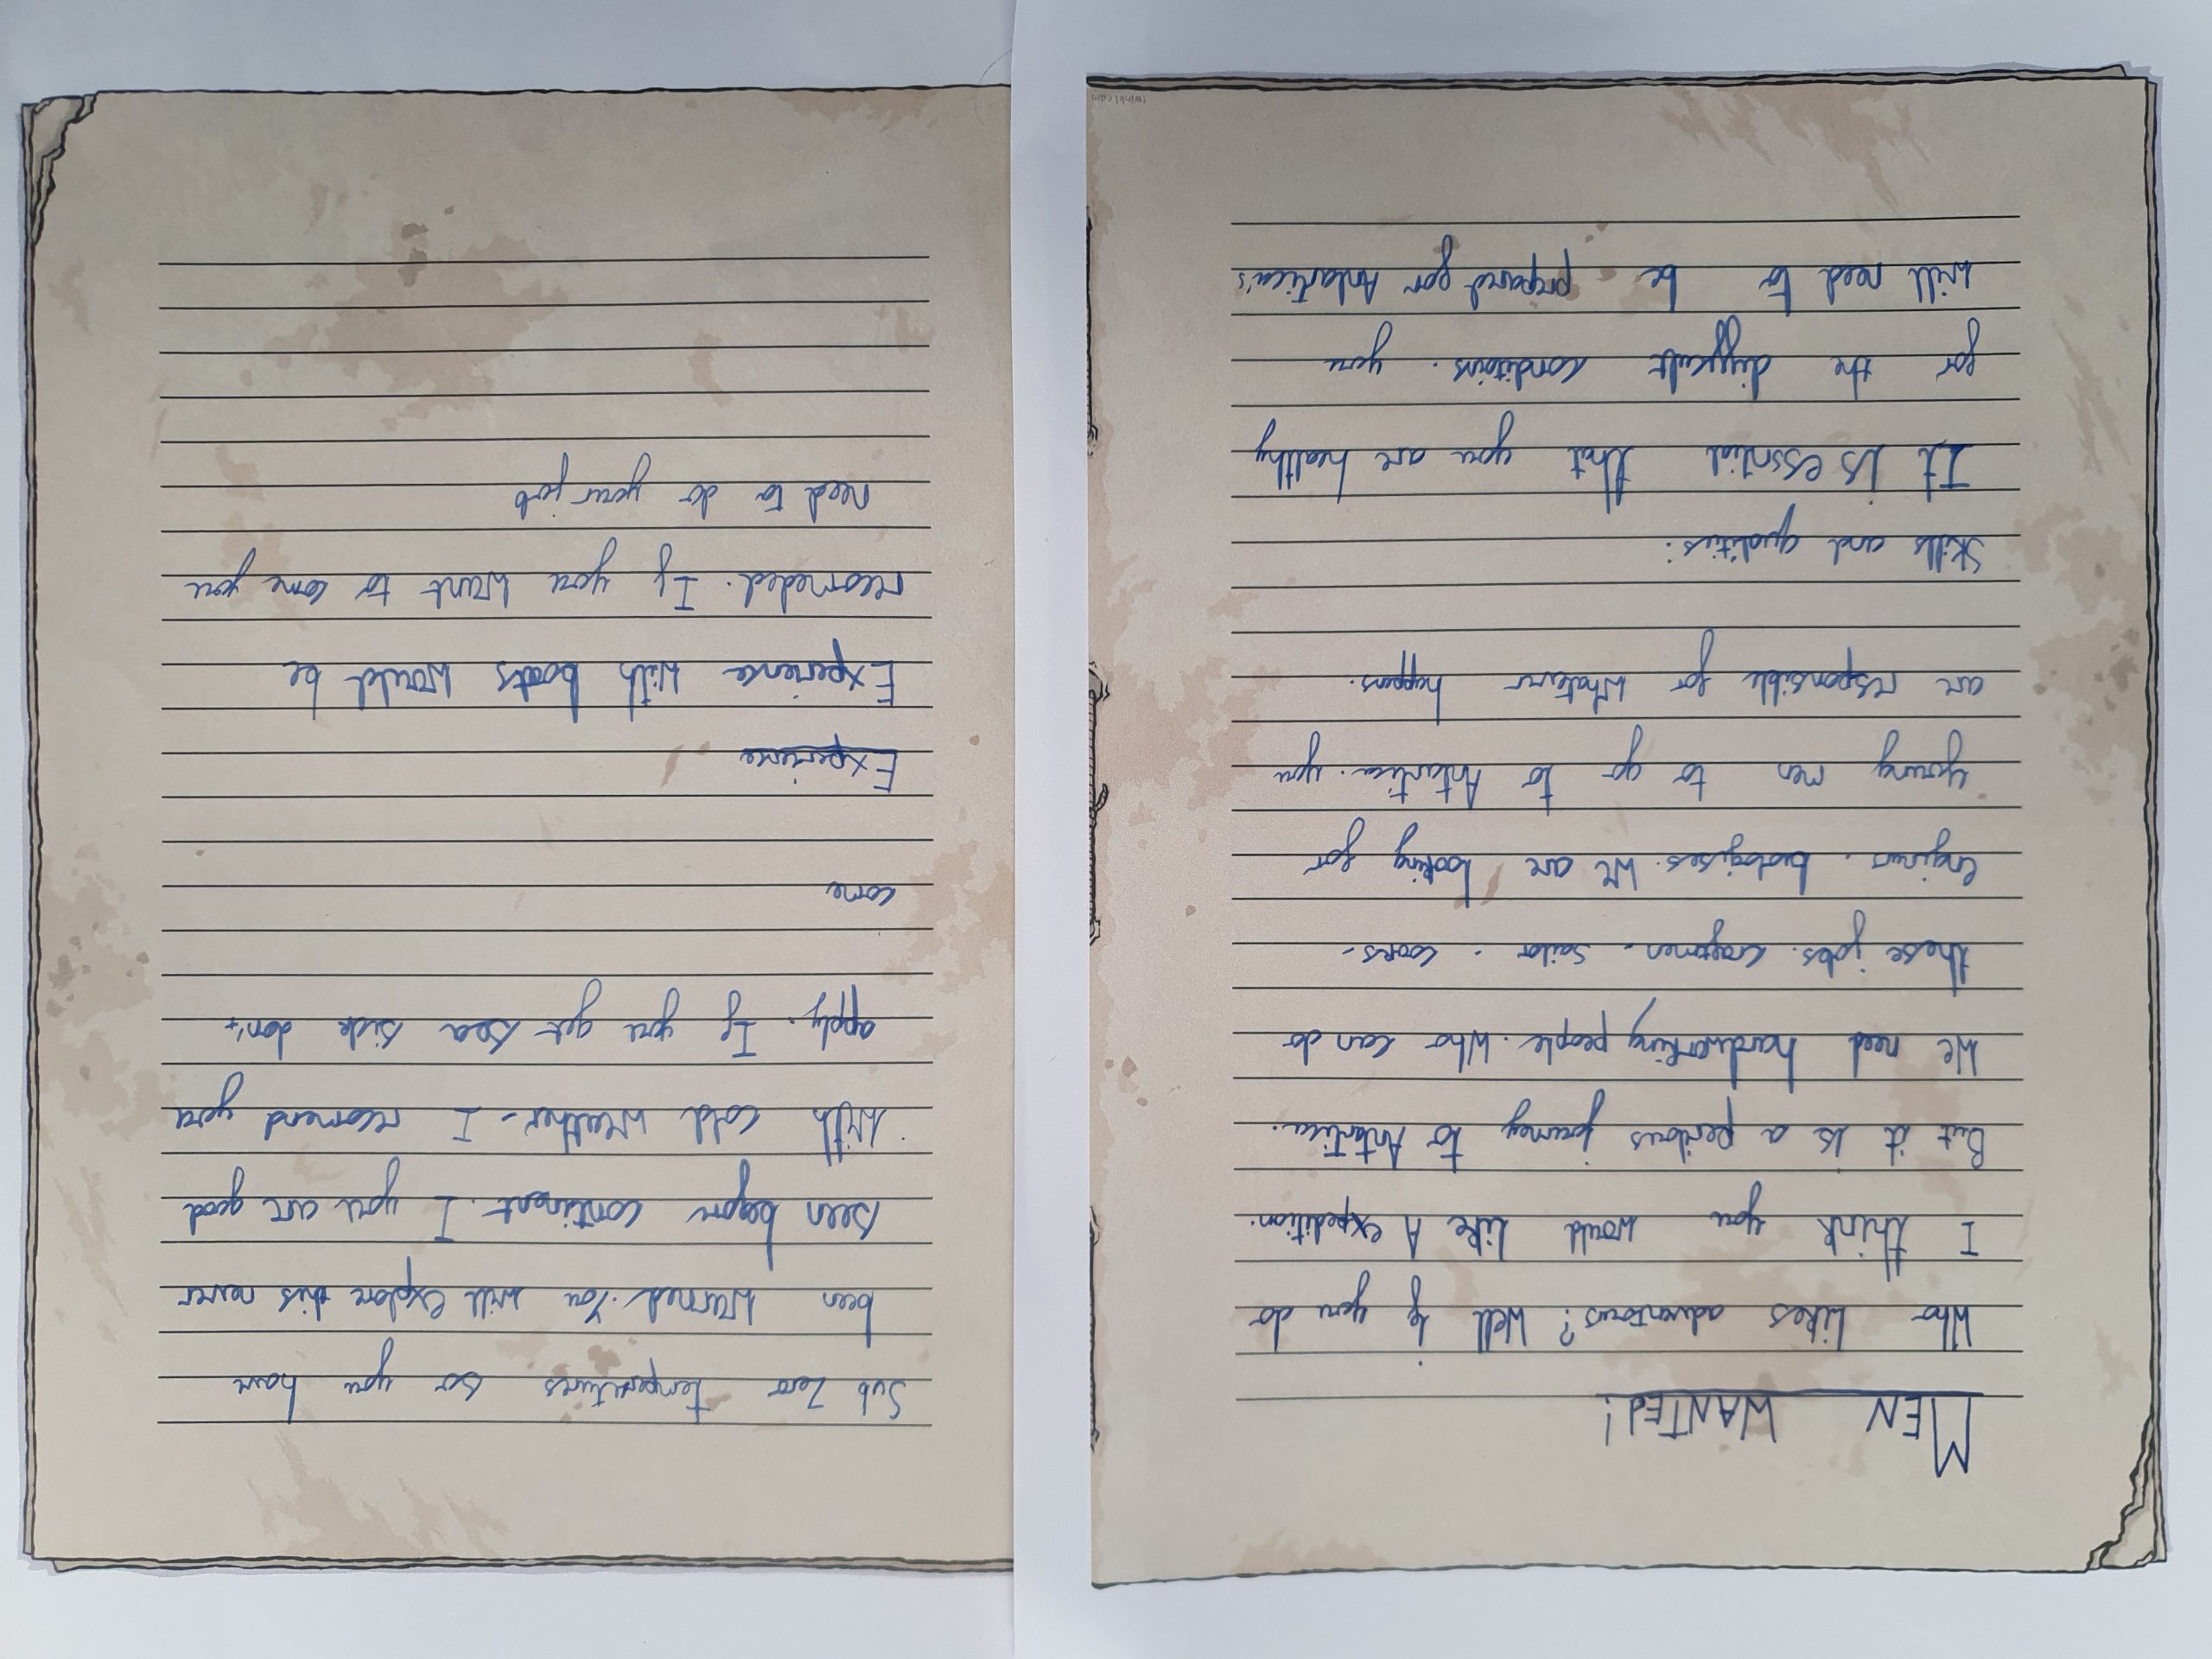 MEN WANTEd!
Who likes adventours? Well if you do
I think you would like A expedition.
But it is a perilous journey to Antartica.
We need hardworking people. Who can do
these jobs. Craftmen. Sailor. cooks.
Enginers. biologises. We are looking for
young men to go to Antartica. you
are responsible for whatever happens.
Skills and qualities:
It is essntial that you are healthy
for the difficult conditions. you
will need to be prepared for Antartica's
twinkl.com
Sub Zero temperatures so you have
been warned. You will explore this never
seen before continent. I you are good
with cold weather. I recomend you
apply. If you get sea sick don't
come
Experience
Experience with boats would be
recomeded. If you want to come you
need to do your job